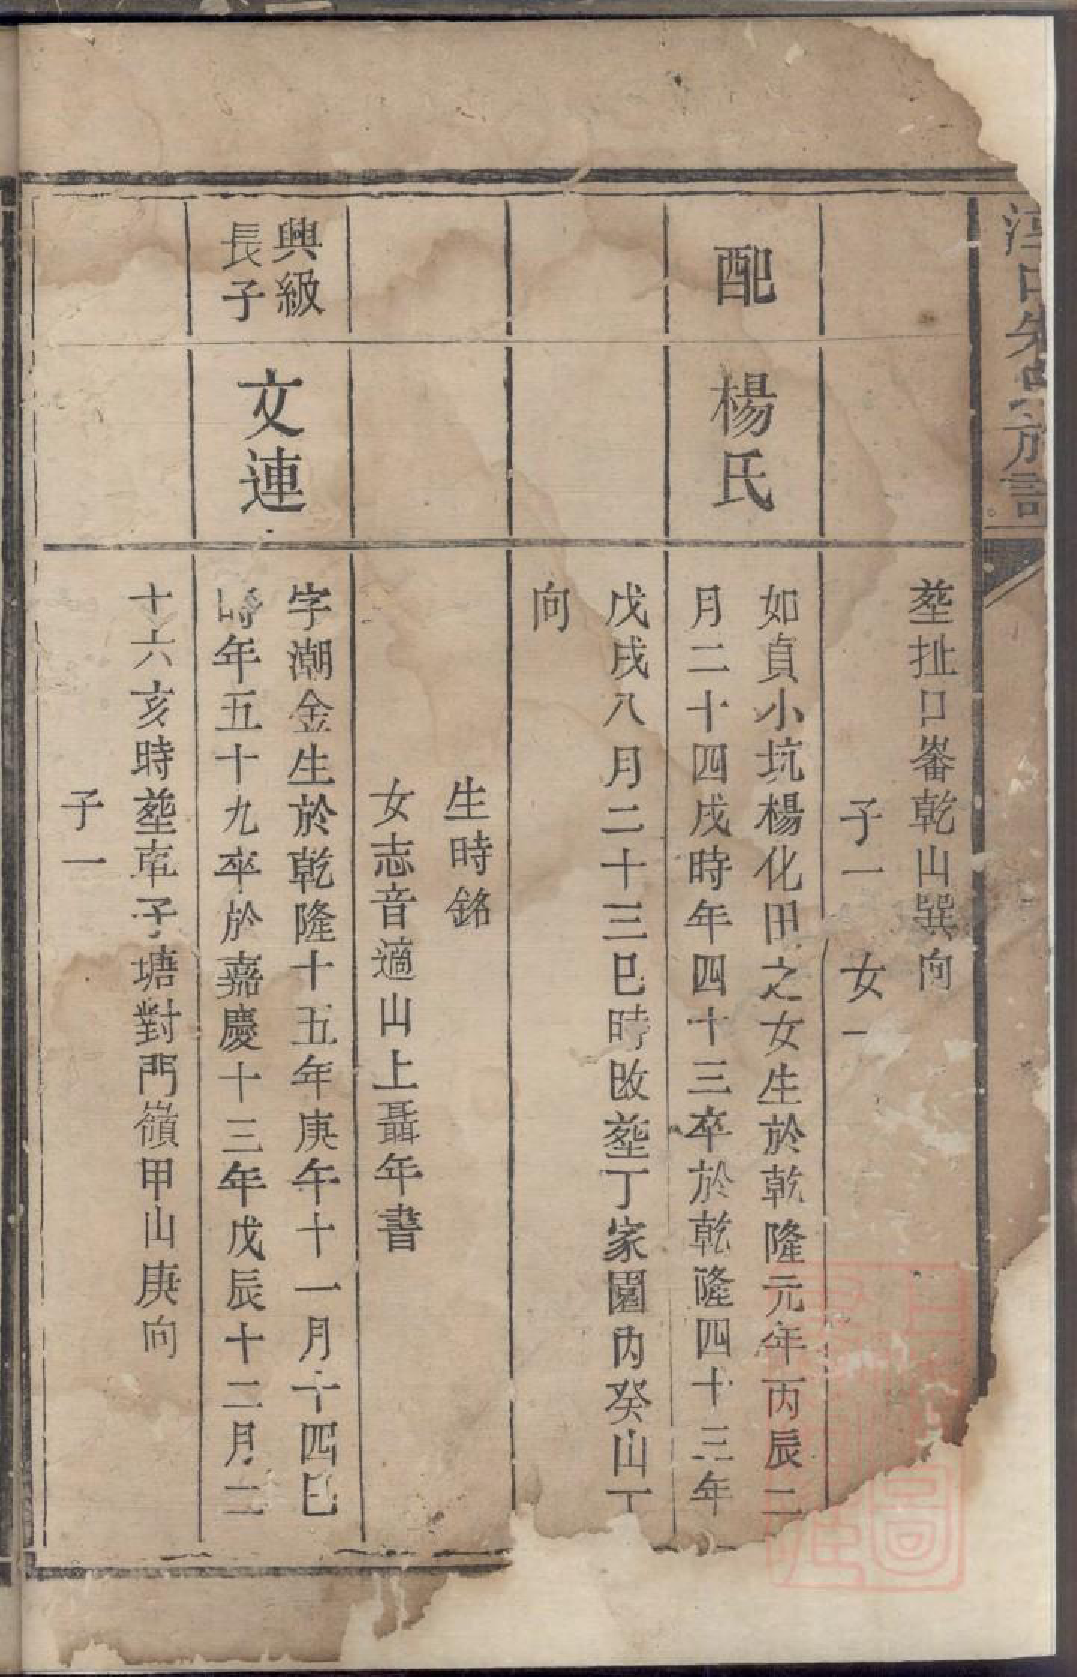 塟扯口崙乾山巽向
子一 女一
配
楊氏
如貞小坑楊化田之女生於乾隆元年丙辰二
月二十四戌時年四十三卒於乾隆四十三年
戊戌八月二十三巳時改塟丁家園内癸山丁
向
生時銘
女志音適山上聶年書
興級
長子
文連
字潮金生於乾隆十五年庚午十一月十四巳
時年五十九卒於嘉慶十三年戊辰十二月二
十六亥時塟車子塘對門嶺甲山庚向
子一